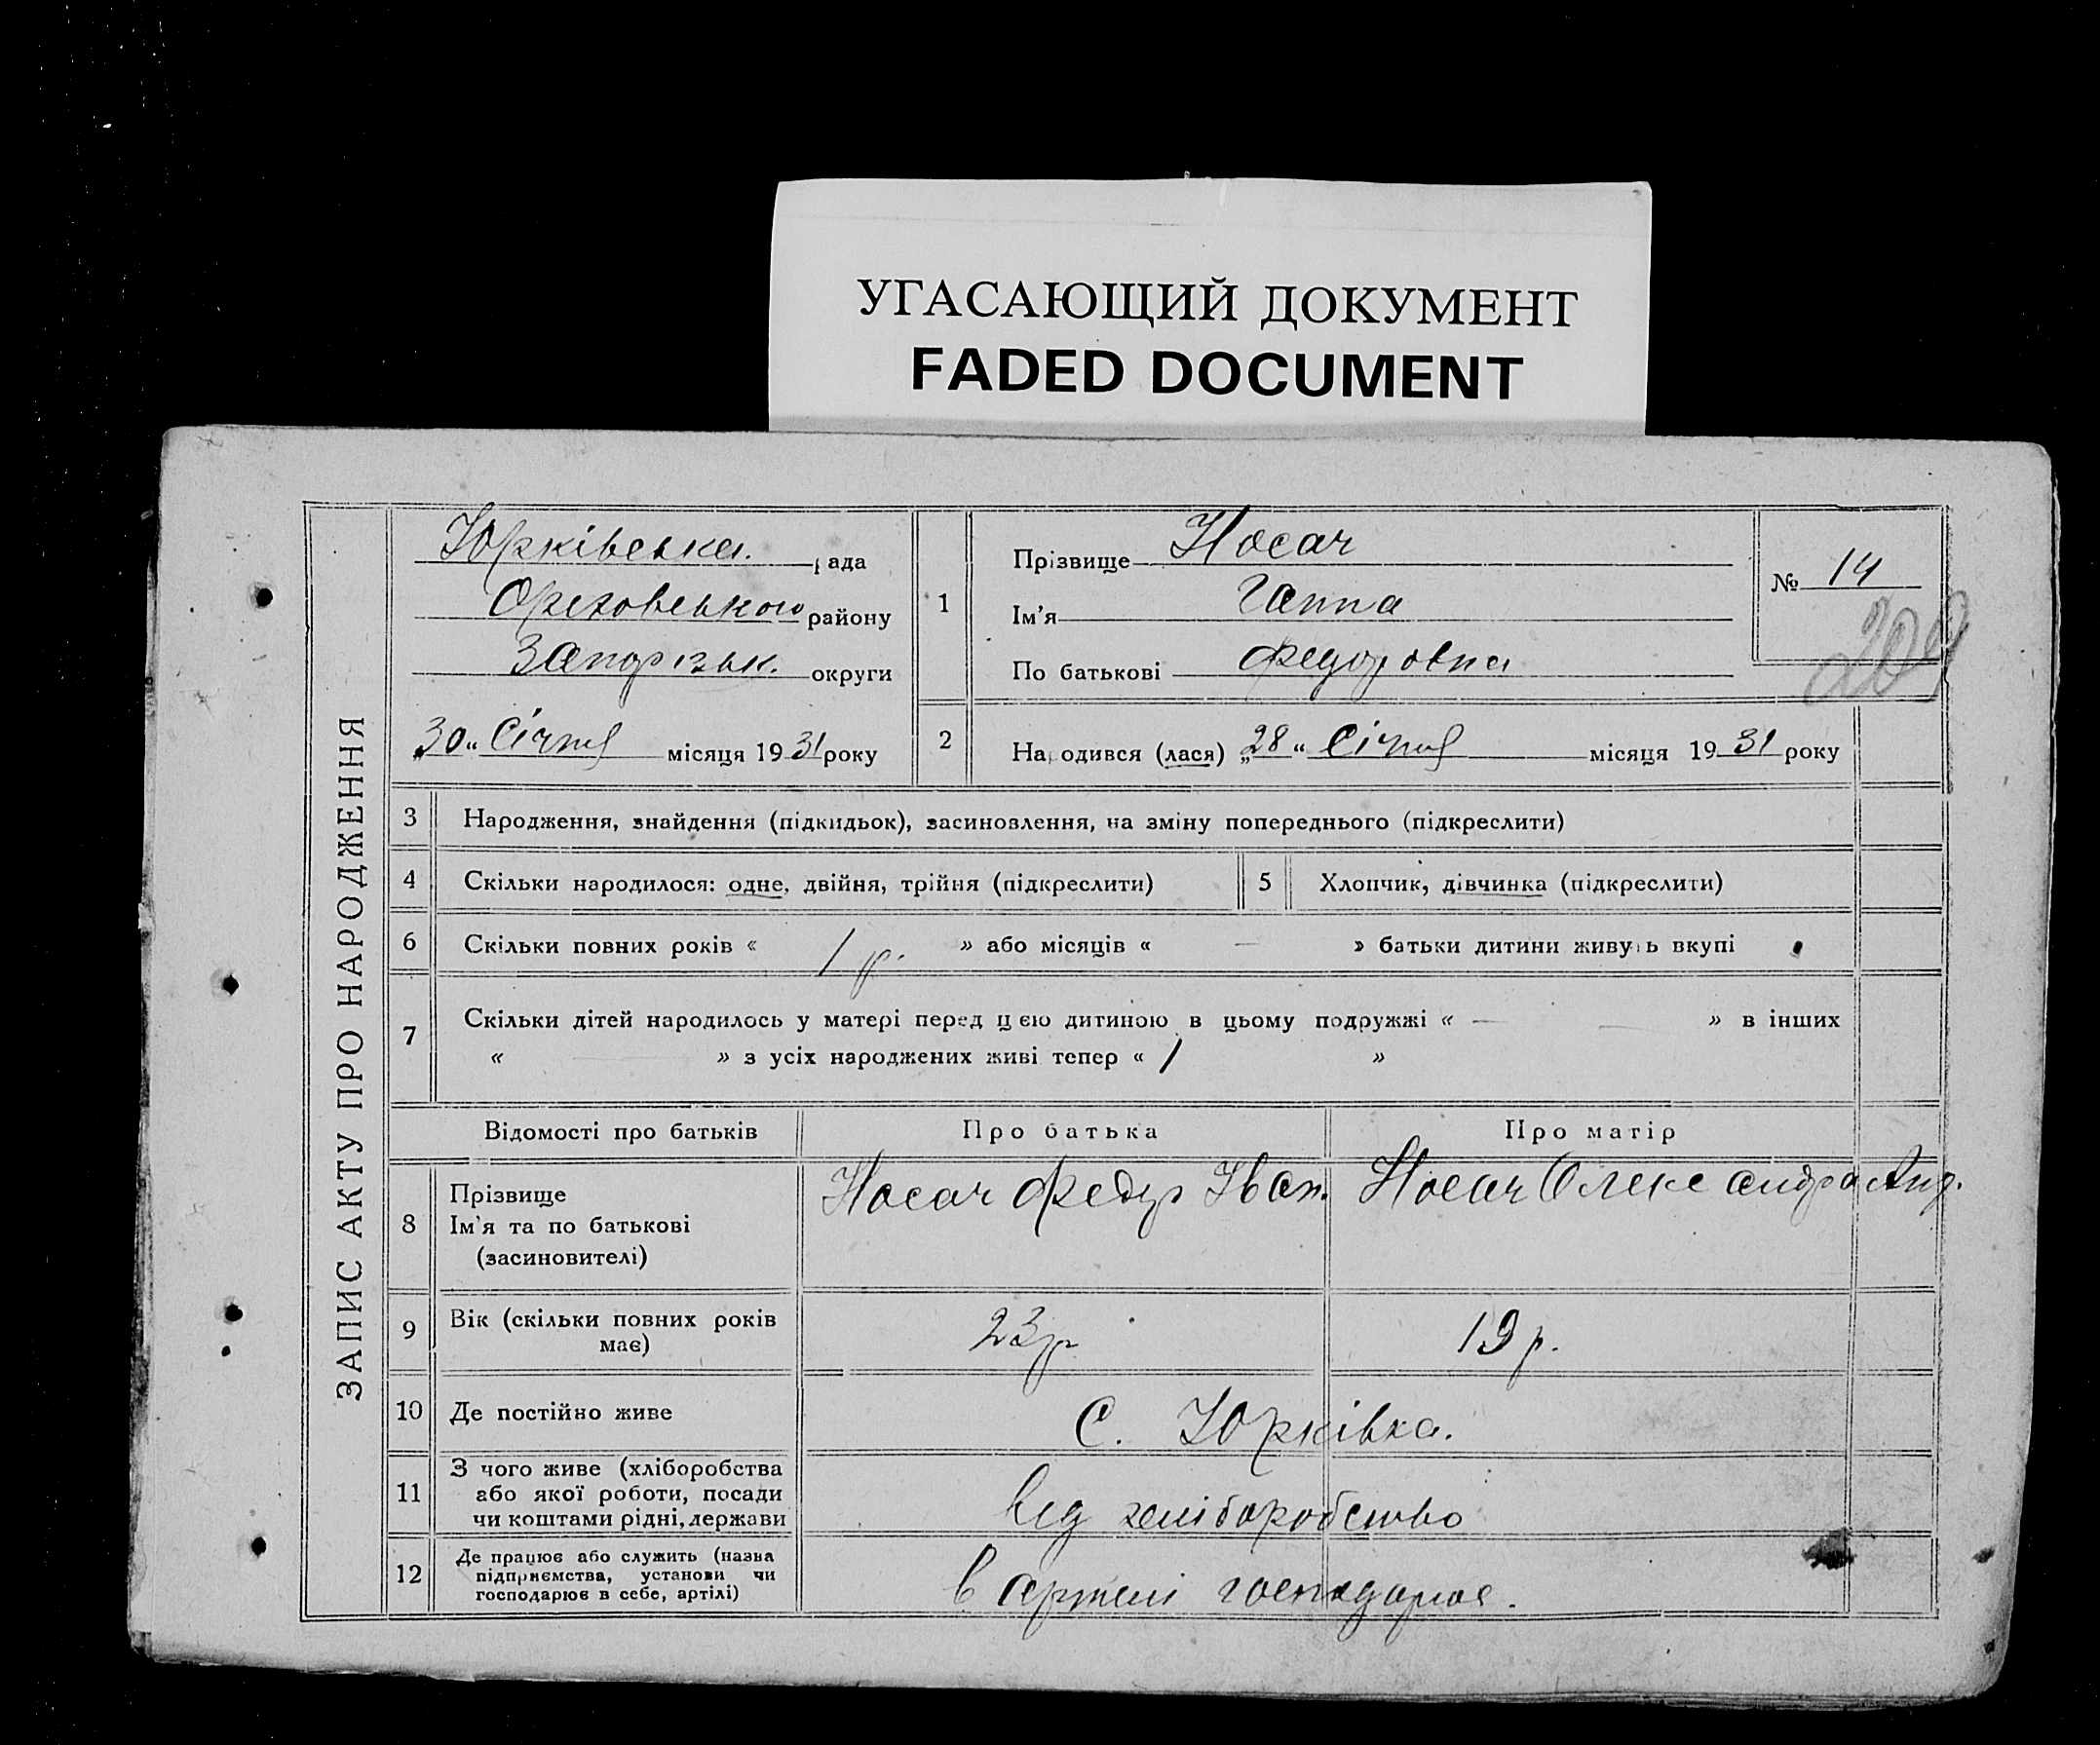 УГАСАЮЩИЙ ДОКУМЕНТ
FADED DOCUMENT
ЗАПИС АКТУ ПРО НАРОДЖЕННЯ
Юрківська. рада
Оріховського району
Запорізьк. округи
„30“ Січня місяця 1931 року
1
Прізвище Носач
Ім'я Ганна
По батькові Федоровна
№ 14
209
2
Народився (лася) „28“ Січня місяця 1931 року
3 Народження, знайдення (підкидьок), засиновлення, на зміну попереднього (підкреслити)
4 Скільки народилося: одне, двійня, трійня (підкреслити) 5 Хлопчик, дівчинка (підкреслити)
6 Скільки повних років « 1 р. » або місяців « — » батьки дитини живуть вкупі
7 Скільки дітей народилось у матері перед цією дитиною в цьому подружжі « — » в інших
« » з усіх народжених живі тепер « 1 »
Відомості про батьків Про батька Про матір
8 Прізвище Ім'я та по батькові (засиновителі) Носач Федір Іван. Носач Олександра Анд.
9 Вік (скільки повних років має) 23р 19р.
10 Де постійно живе С. Юрківка.
11 З чого живе (хліборобства або якої роботи, посади чи коштами рідні, держави від хліборобство
12 Де працює або служить (назва підприємства, установи чи господарює в себе, артілі) в артелі господарює.